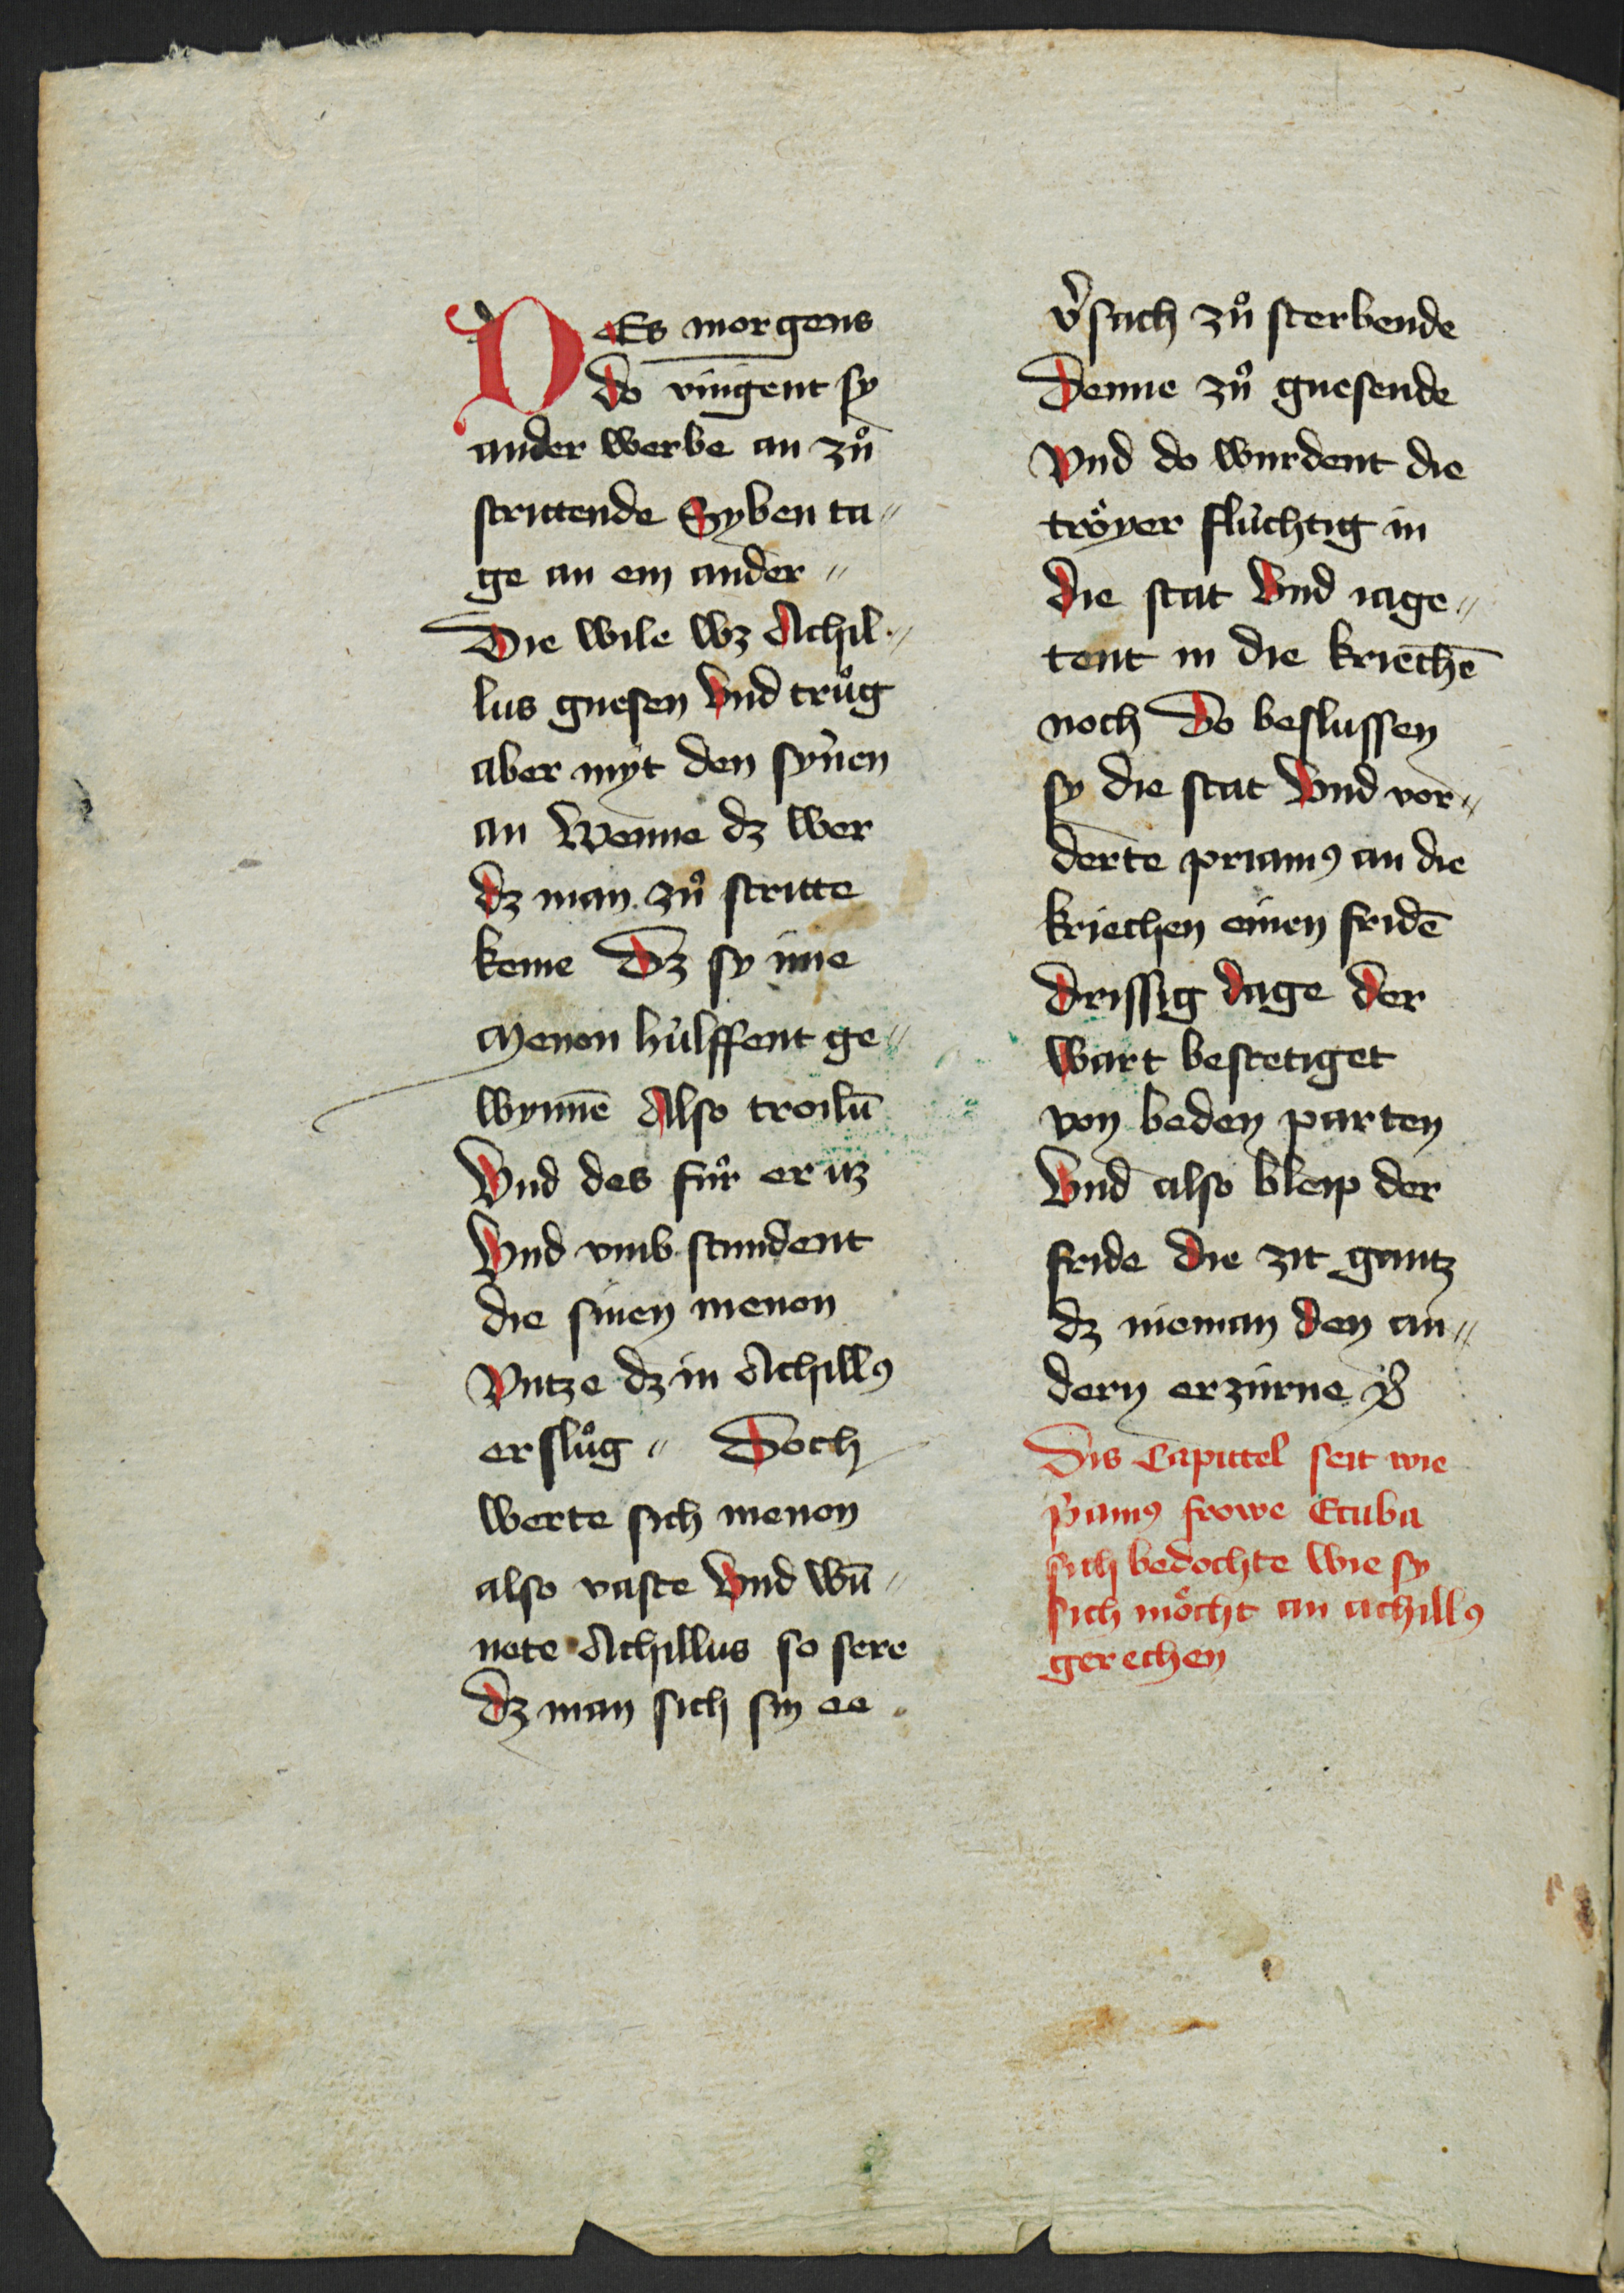 DEs morgens
do vingent sy
ander werbe an zuͦ
strittende Syben ta〃
ge an ein ander〃
Die wile wz Achil〃
lus gnesen Vnd truͦg
aber myt den synen
an Wenne dz wer
dz man zuͦ stritte
keme Dz sy ime
Menon hülffent ge〃
wynnē Also troilū
Vnd des fuͦr er uz
Vnd vmb stundent
die sinen menon
Vntze dz in Achillꝰ
ersluͦg〃 Doch
werte sich menon
also vaste Vnd wū〃
nete Achillus so sere
dz man sich sin ee
v͛sach zuͦ sterbende
Denne zuͦ gnesende
Vnd do wurdent die
tröyer flüchtig in
die stat Vnd iage〃
tent in die kriechē
noch Do beslussen
sy die stat Vnd vor〃
derte priamꝰ an die
kriechen einen fridē
drissig dage der
wart bestetiget
von beden parten
Vnd also bleip der
fride die zit gantz
dz nieman den an〃
dern erzürne
Dis Capittel seit wie
p͛amꝰ frowe Ecuba
sich bedochte wie sy
sich möcht an achillꝰ
gerechen